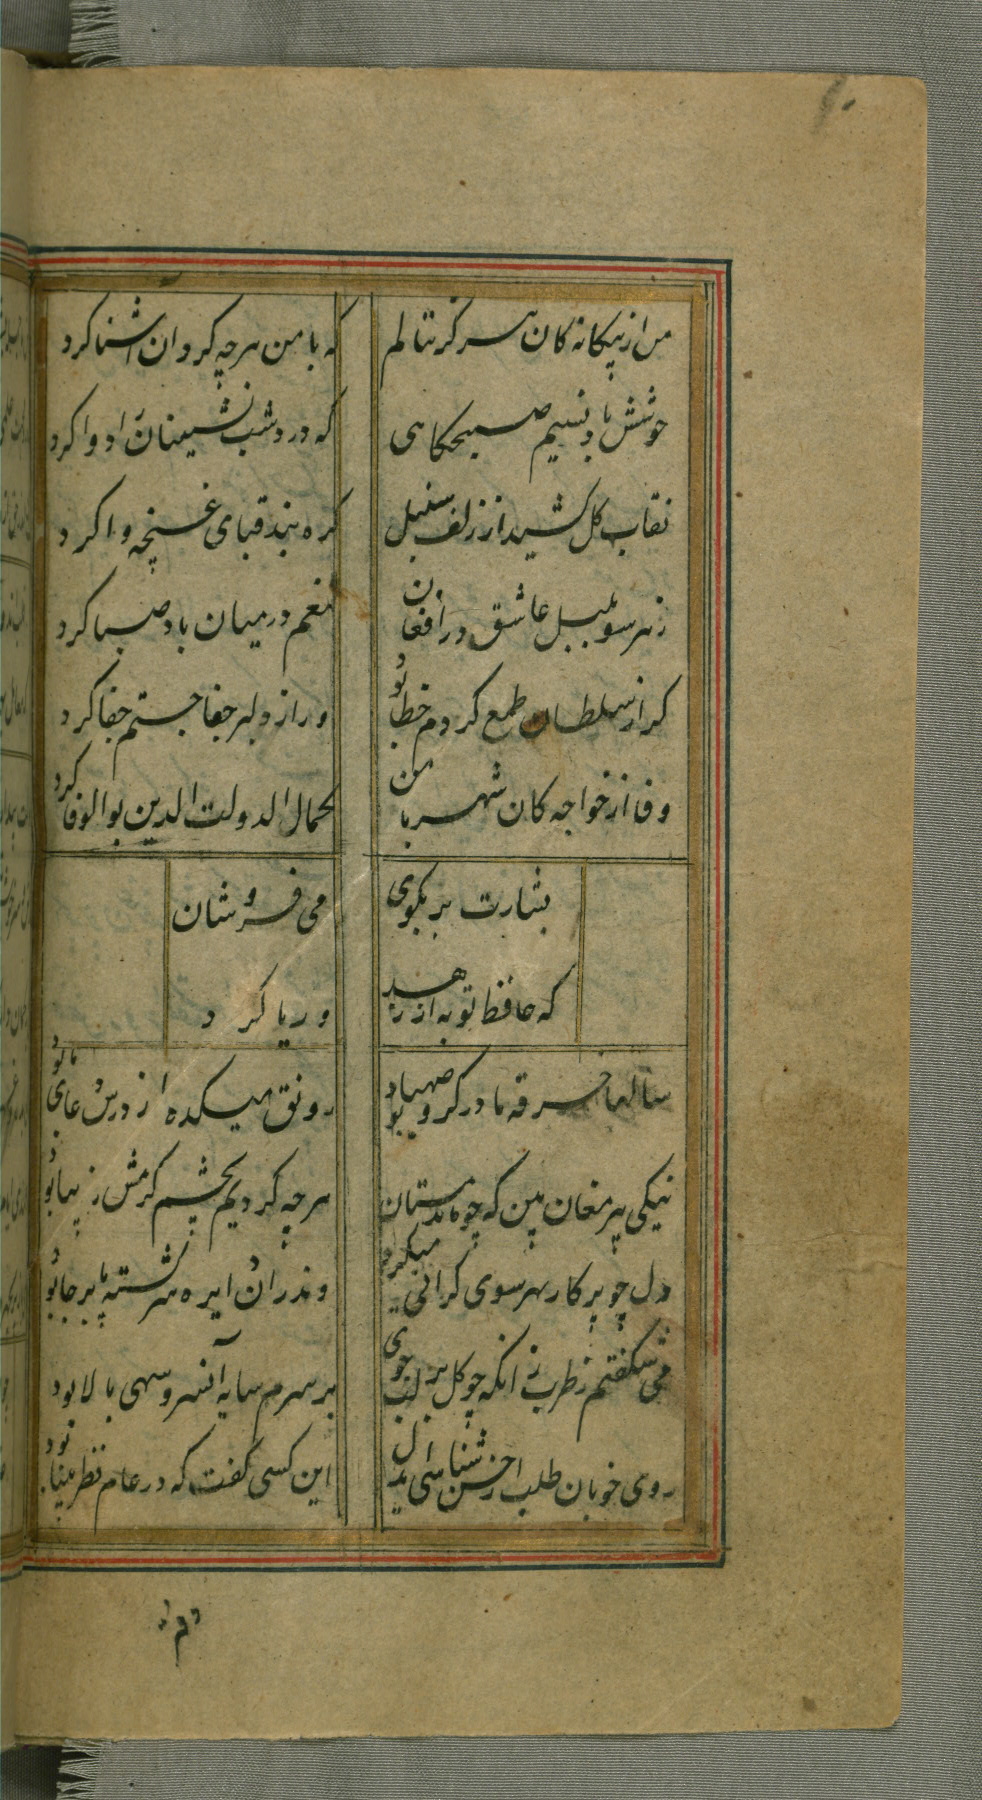 من از بیکانه کان هرگز ننالم که با من هرچه کرد ان اشنا کرد
خوشش باد نسیم صبحکاهی که درد شب نشینان را دوا کرد
نقاب کل کشید از زلف سنبل کره بند قبای غنچه وا کرد
زهر سو بلبل عاشق در افغان تنعم در میان باد صبا کرد
کر از سلطان طمع کردم خطا بود ور از دلبر جفا جستم جفا کرد
وفا از خواجه کان شهر با من کمال الدولت الدین بوالوفا کرد
بشارت بر بکوی می فروشان
که حافظ توبه از زهد و ریا کرد
سالها خرقه ما در کرو صهبا بود رونق میکده از درس و عای ما بود
نیکی پیر مغان بین که چو ما بدمستان هرچه کردیم بچشم کرمش زیبا بود
دل چو پرکار بهر سوی کرانی میکرد وندران دایره سرکشته پا برجا بود
می شکفتم ز طرب زانکه چو کل بر لب جوی بر سرم سایه آن سرو سهی بالا بود
روی خوبان طلب از حسن شناسی ای دل این کسی کفت که در عالم نظر بینا بود